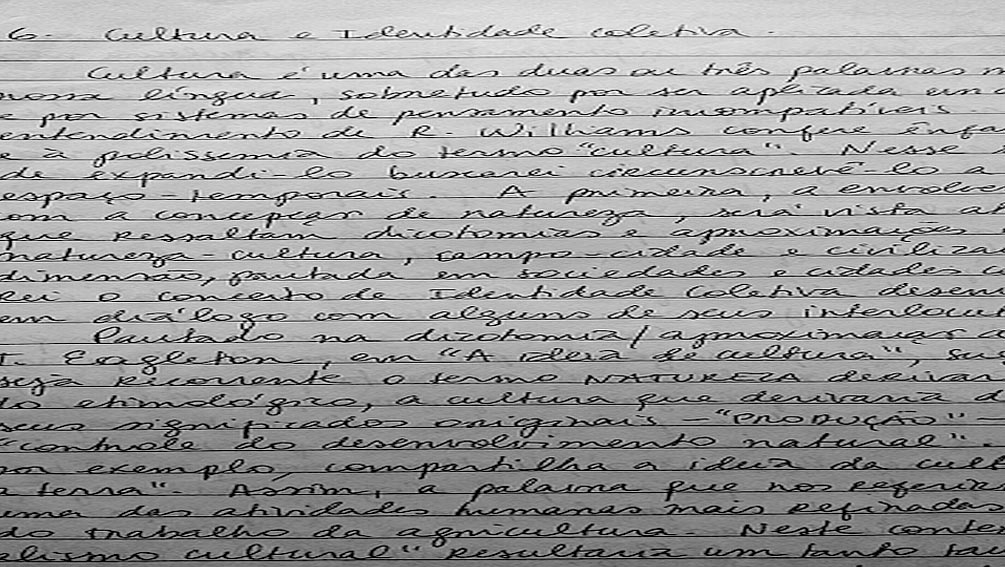 6. Cultura e Identidade coletiva.
Cultura é uma das duas ou três palavras
nossa língua, sobretudo por ser aplicada em
e por sistemas de pensamento incompatíveis.
entendimento de R. Williams confere
e à polissemia do termo "cultura". Nesse
de expandi-lo buscarei circunscrevê-lo a
espaço-temporais. A primeira, a envolver
om a concepção de natureza, será vista
que ressaltam dicotomias e aproximações
natureza-cultura, campo-cidade e civiliza
dimensão, pautada em sociedades e cidades
rei o conceito de Identidade Coletiva desen
em diálogo com alguns de seus interlocut
Pautado na dicotomia/aproximação
T. Eagleton, em "A ideia de cultura",
seja recorrente o termo NATUREZA derivar
to etimológico, a cultura que derivaria d
seus significados originais - "PRODUÇÃO"
"controle do desenvolvimento natural".
por exemplo, compartilha a ideia da cult
a terra". Assim, a palavra que nos referia
uma das atividades humanas mais refinadas
do trabalho da agricultura. Neste conte
alismo cultural" resultaria um tanto